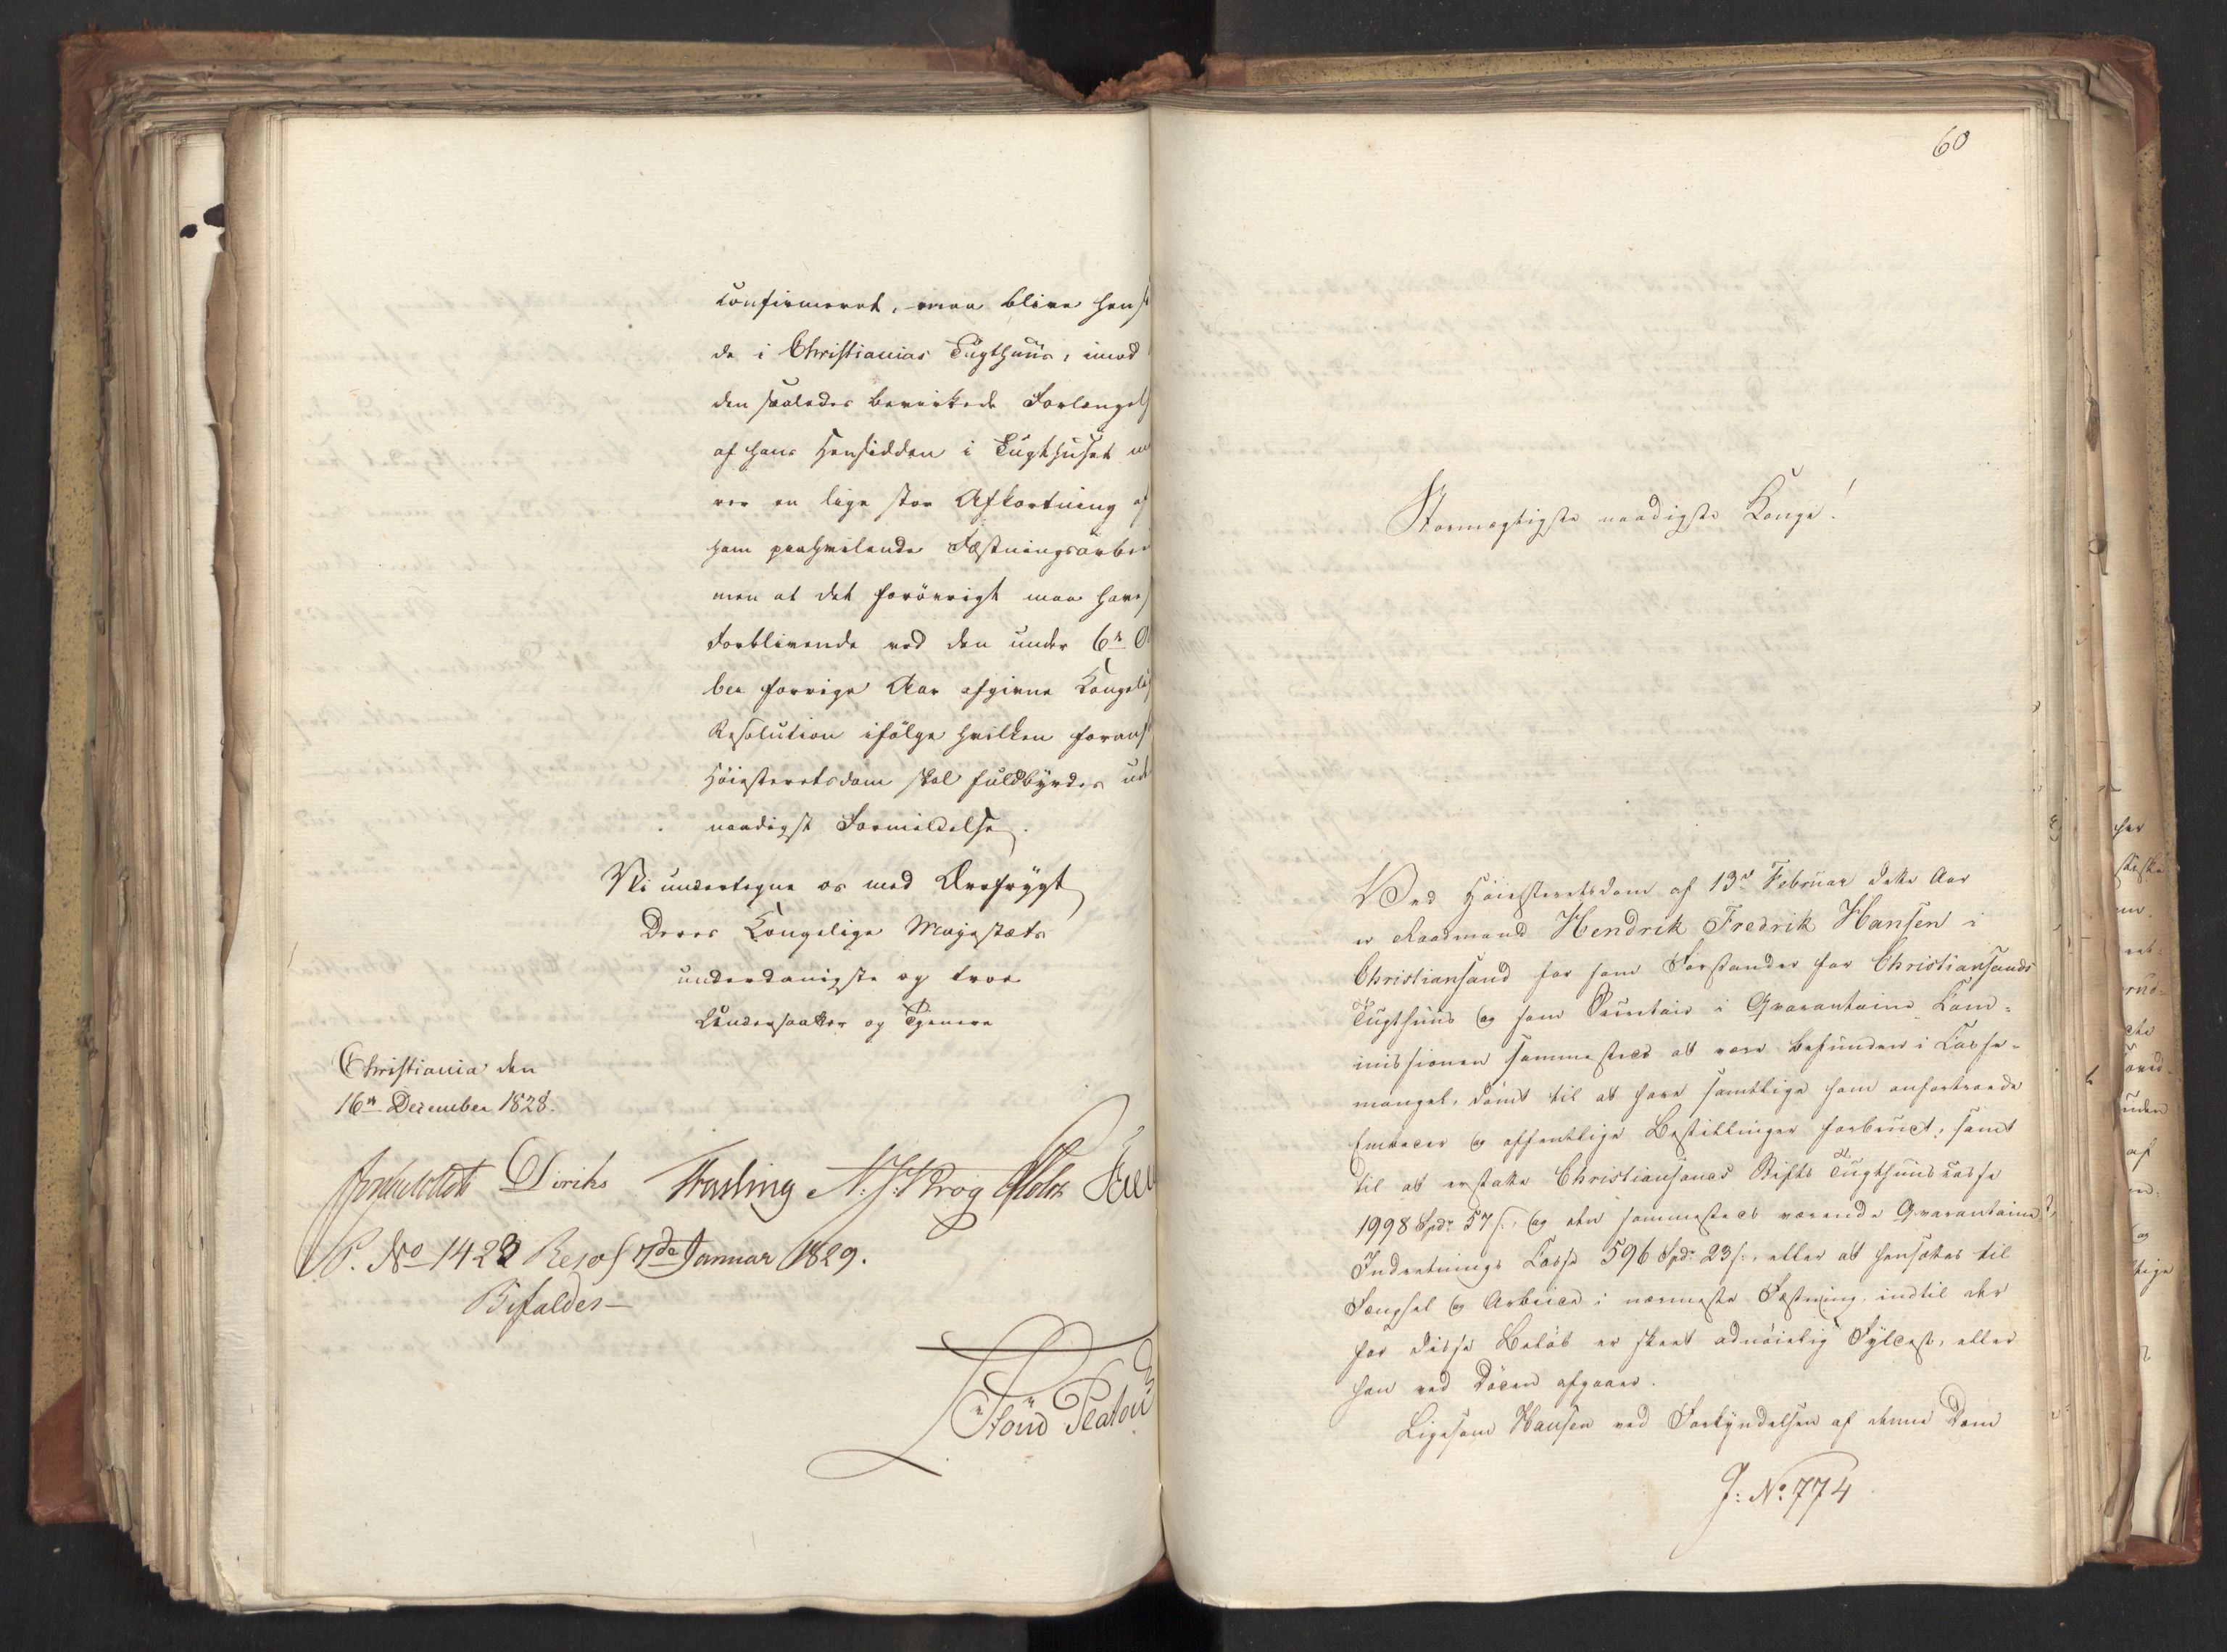 confirmeret, maa blive hens
de i Christianias Tugthuus, imod
den saaledes bevirkede Forlængels
af hans Hensidden i Tugthuset
ver en lige stor Afkortning af
ham paahvilende Fæstningsarbei
men at det forövrigt maa have
Forblivende ved den under 6te O
ber forrige Aar afgivne Kongelig
Resolution ifölge hvilken forans
Höiesteretsdom skal fuldbyrdes ud
naadigst Formildelse.
Vi undertegne os med Ærefrygt
Deres Kongelige Majestæts
underdanigste og troe
Undersaatter og Tjenere
Christiania den
16de December 1828.
Diriks Krog Holst
P. No 1423 Resol 7de Januar 1829.
Bifaldes-
Platou
60
Stormægtigste naadigste Konge!
Ved Höiesteretsdom af 13de Februar dette Aar
er Raadmand Hendrik Fredrik Hansen i
Christiansand for som Forstander for Christiansands
Tugthuus og som Secretair i Qvarantaine Com-
missionen sammesteds at være befunden i Casse-
mangel, dömt til at have samtlige ham anfortroede
Embeder og offentlige Bestillinger forbrudt, samt
til at erstatte Christiansands Stifts Tugthuuscasse
1998 Spdr 57 s., og den sammesteds værende Qvarantaine
Indretnings Casse 596 Spdr 23 s., eller at hensættes til
Fængsel og Arbeide i nærmeste Fæstning, indtil der
for disse Belöb er skeet adnöielig Fyldest, eller
han ved Döden afgaaer.
Ligesom Hansen ved Forkyndelsen af denne Dom
J: No. 774